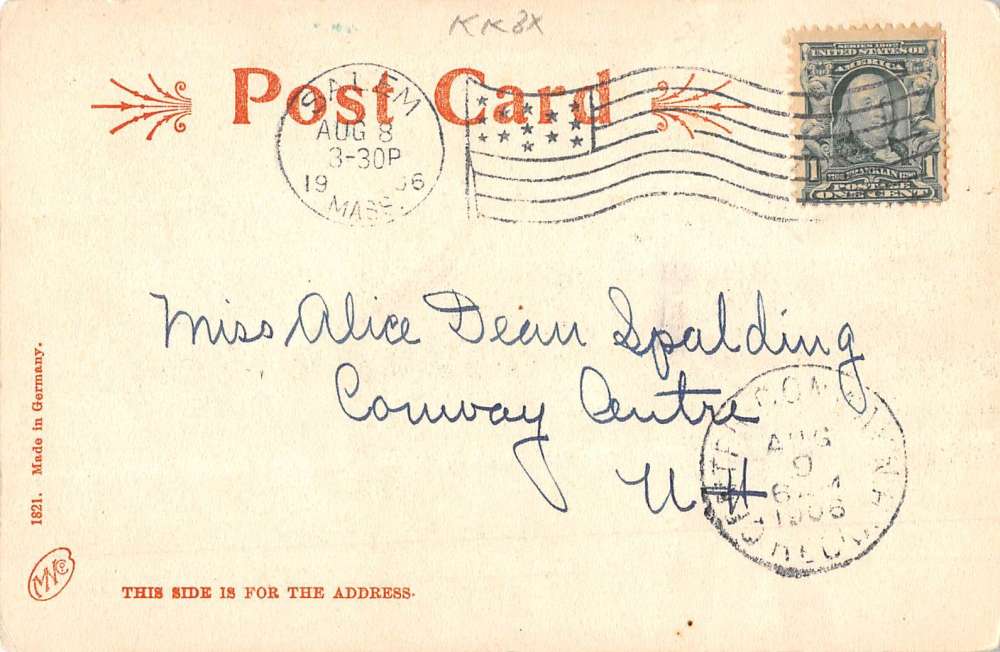 KK8X
Post Card
SALEM
AUG 8
3-30P
19 06
MASS.
SERIES 1902
UNITED STATES OF
AMERICA
1 1
FRANKLIN
POSTAGE
ONE CENT
Miss Alice Dean Spalding
Conway Centre
N H
CENTER CONWAY, N.H.
AUG
9
6
1906
REC'D.
1821. Made in Germany.
MNCo
THIS SIDE IS FOR THE ADDRESS.